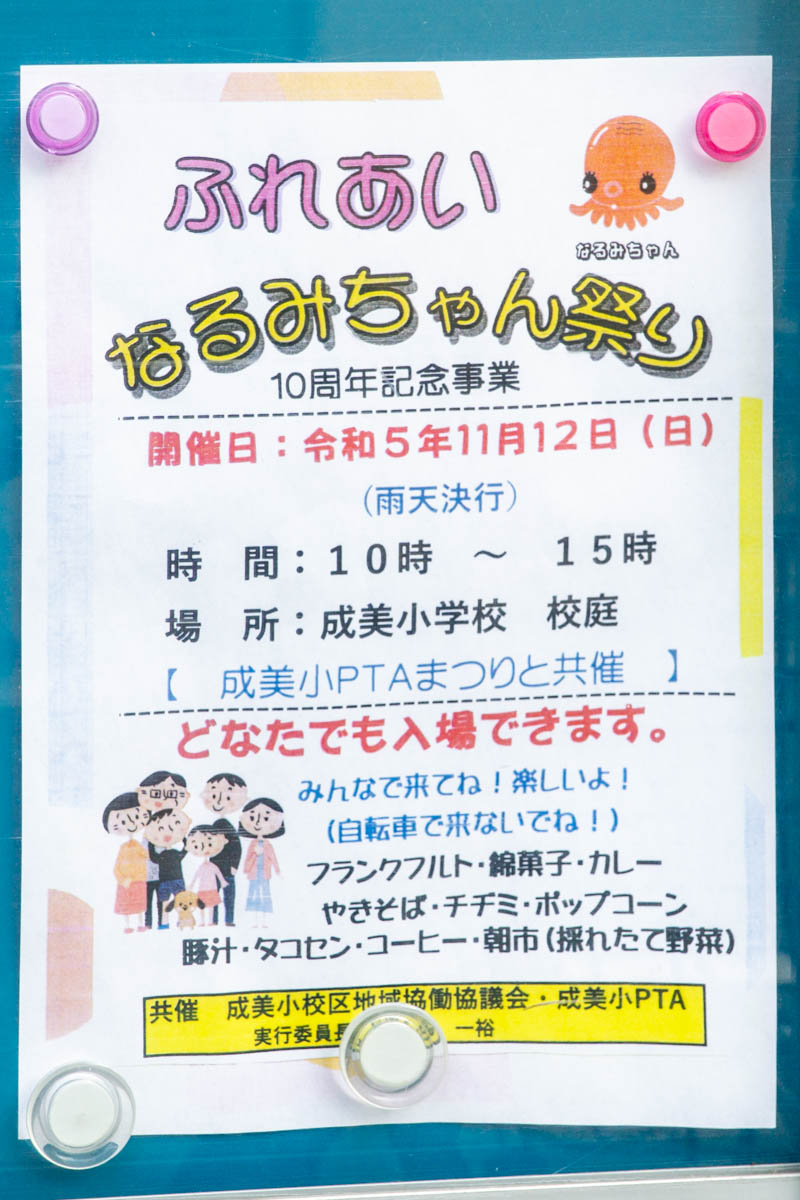 ふれあい
なるみちゃん
なるみちゃん祭り
10周年記念事業
開催日：令和５年11月12日（日）
（雨天決行）
時　間：１０時　～　１５時
場　所：成美小学校　校庭
【　成美小PTAまつりと共催　】
どなたでも入場できます。
みんなで来てね！楽しいよ！
（自転車で来ないでね！）
フランクフルト・綿菓子・カレー
やきそば・チヂミ・ポップコーン
豚汁・タコセン・コーヒー・朝市（採れたて野菜）
共催　成美小校区地域協働協議会・成美小PTA
実行委員長　一裕